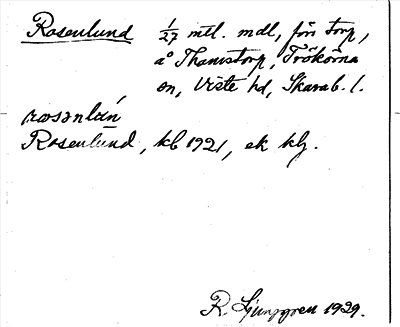 Rosenlund 1/27 mtl. mdl, förr torp,
å Thamstorp, Trökörna
sn, Viste hd, Skarab. l.
rosənlún
Rosenlund, kb 1921, ek kbg.
R. Ljunggren 1929.